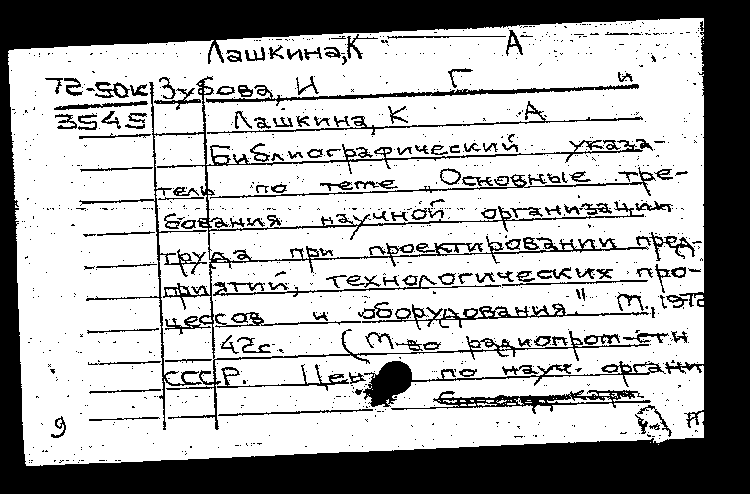 Лашкина, К А
72-50к Зубова, И Г и
3545 Лашкина, К А
Библиографический указа-
тель по теме „Основные тре-
бования научной организации
труда при проектировании пред-
приятий, технологических про-
цессов и оборудования." М., 1972
42с. (М-во радиопром-сти
СССР. Цен по науч. органи
9